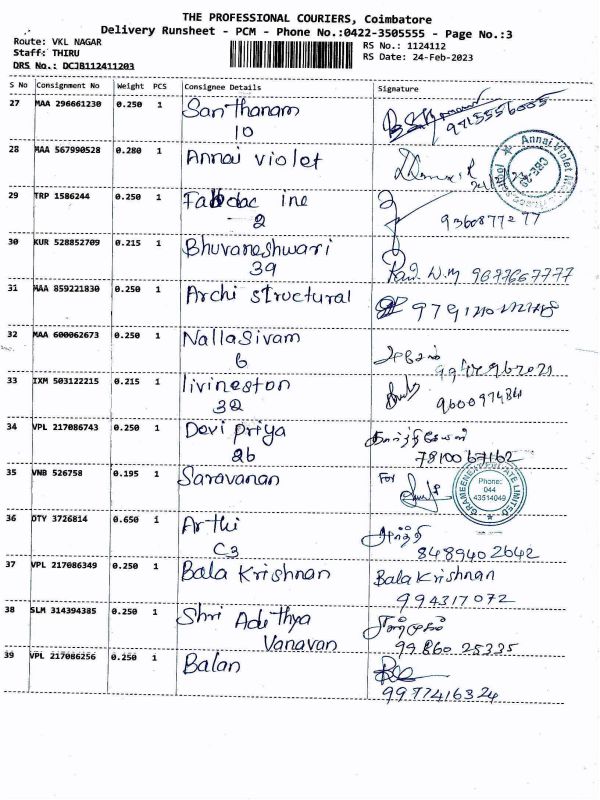 THE PROFESSIONAL COURIERS, Coimbatore
Delivery Runsheet - PCM - Phone No.:0422-3505555 - Page No.:3
Route: VKL NAGAR
RS No.: 1124112
Staff: THIRU
RS Date: 24-Feb-2023
DRS No.: DCJB112411203
S No Consignment No Weight PCS Consignee Details Signature
27 MAA 296661230 0.250 1 Santhanam
10
9715556005
28 MAA 567990528 0.280 1 Annai violet
Annai Violet
29 TRP 1586244 0.250 1 Fabdac ine
2
9360877277
30 KUR 528852709 0.215 1 Bhuvaneshwari
39
9677667777
31 MAA 859221830 0.250 1 Archi structural
32 MAA 600062673 0.250 1 Nallasivam
6
33 IXM 503122215 0.215 1 livineston
32
960097484
34 VPL 217086743 0.250 1 Devi priya
26
கார்த்திகேயன்
7810067162
35 VNB 526758 0.195 1 Saravanan
For
GRAMEENET PRIVATE LIMITED
Phone:
044
43514049
36 OTY 3726814 0.650 1 Arthi
C3
ஆர்த்தி
8489402642
37 VPL 217086349 0.250 1 Bala Krishnan
Bala Krishnan
994317072
38 SLM 314394385 0.250 1 Shri Adethya
Vanavan
99860 25335
39 VPL 217086256 0.250 1 Balan
9977416324